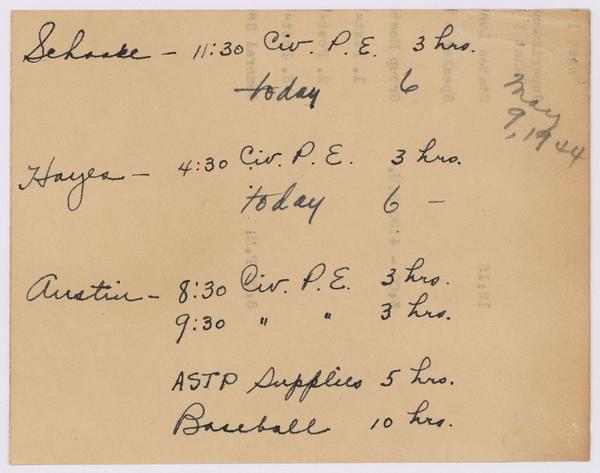 Schaake - 11:30 Civ. P.E. 3 hrs.
today 6
May
9, 1944
Hayes - 4:30 Civ. P.E. 3 hrs.
today 6 -
Austin - 8:30 Civ. P.E. 3 hrs.
9:30 " " 3 hrs.
ASTP Supplies 5 hrs.
Baseball 10 hrs.